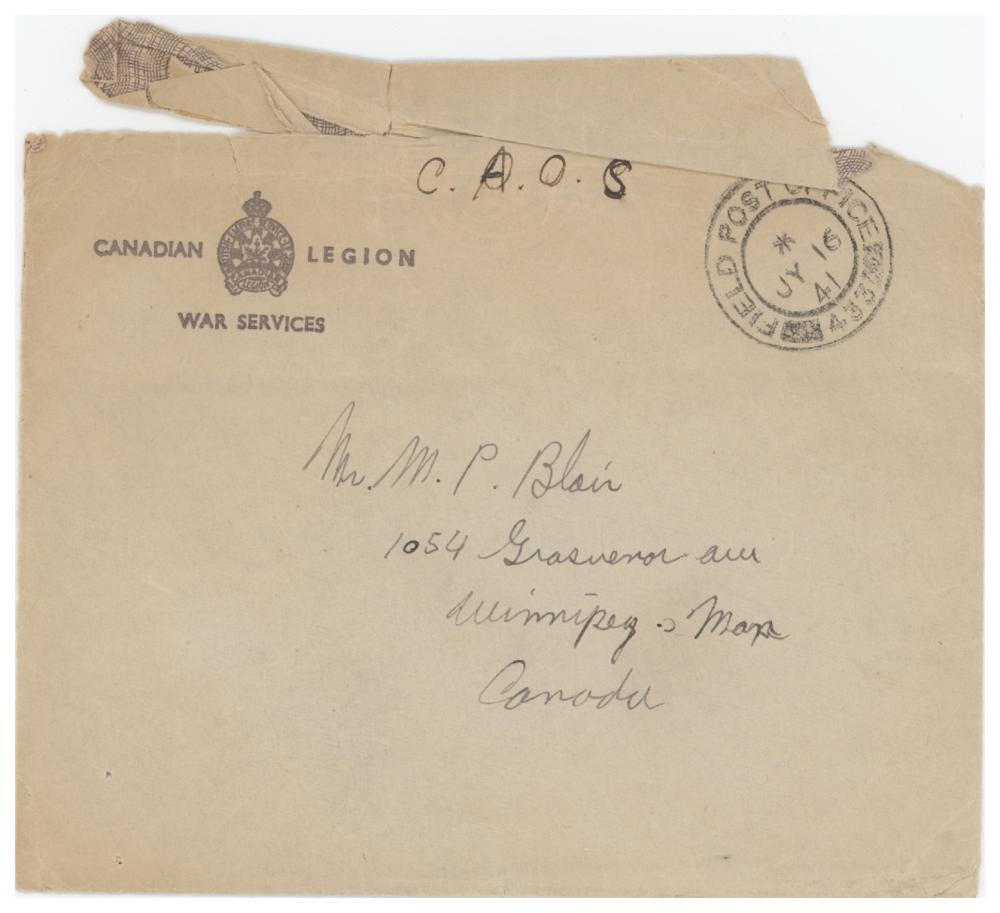 C. A. O. S
FIELD POST OFFICE 433
* JY 16 41
CANADIAN LEGION
CANADIAN LEGION
WAR SERVICES
Mr. M. P. Blair
1054 Grosvenor ave
Winnipeg Man
Canada